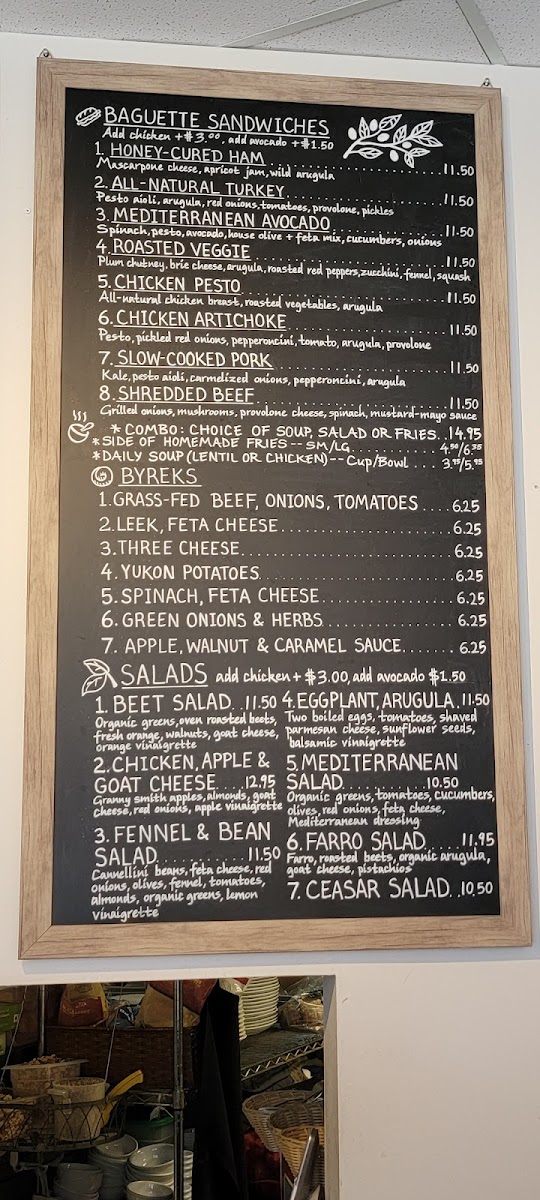 BAGUETTE SANDWICHES
Add chicken + $3.00, add avocado + $1.50
1. HONEY-CURED HAM ..... 11.50
Mascarpone cheese, apricot jam, wild arugula
2. ALL-NATURAL TURKEY ..... 11.50
Pesto aioli, arugula, red onions, tomatoes, provolone, pickles
3. MEDITERRANEAN AVOCADO ..... 11.50
Spinach, pesto, avocado, house olive + feta mix, cucumbers, onions
4. ROASTED VEGGIE ..... 11.50
Plum chutney, brie cheese, arugula, roasted red peppers, zucchini, fennel, squash
5. CHICKEN PESTO ..... 11.50
All-natural chicken breast, roasted vegetables, arugula
6. CHICKEN ARTICHOKE ..... 11.50
Pesto, pickled red onions, pepperoncini, tomato, arugula, provolone
7. SLOW-COOKED PORK ..... 11.50
Kale, pesto aioli, carmelized onions, pepperoncini, arugula
8. SHREDDED BEEF ..... 11.50
Grilled onions, mushrooms, provolone cheese, spinach, mustard-mayo sauce
* COMBO: CHOICE OF SOUP, SALAD OR FRIES.. 14.95
* SIDE OF HOMEMADE FRIES -- SM/LG ..... 4.50/6.35
* DAILY SOUP (LENTIL OR CHICKEN) -- Cup/Bowl ... 3.95/5.95
BYREKS
1. GRASS-FED BEEF, ONIONS, TOMATOES .... 6.25
2. LEEK, FETA CHEESE ..... 6.25
3. THREE CHEESE ..... 6.25
4. YUKON POTATOES ..... 6.25
5. SPINACH, FETA CHEESE ..... 6.25
6. GREEN ONIONS & HERBS ..... 6.25
7. APPLE, WALNUT & CARAMEL SAUCE ..... 6.25
SALADS add chicken + $3.00, add avocado $1.50
1. BEET SALAD.. 11.50
Organic greens, oven roasted beets,
fresh orange, walnuts, goat cheese,
orange vinaigrette
2. CHICKEN, APPLE &
GOAT CHEESE ... 12.95
Granny smith apples, almonds, goat
cheese, red onions, apple vinaigrette
3. FENNEL & BEAN
SALAD ..... 11.50
Cannellini beans, feta cheese, red
onions, olives, fennel, tomatoes,
almonds, organic greens, lemon
vinaigrette
4. EGGPLANT, ARUGULA. 11.50
Two boiled eggs, tomatoes, shaved
parmesan cheese, sunflower seeds,
balsamic vinaigrette
5. MEDITERRANEAN
SALAD ..... 10.50
Organic greens, tomatoes, cucumbers,
olives, red onions, feta cheese,
Mediterranean dressing
6. FARRO SALAD .... 11.95
Farro, roasted beets, organic arugula,
goat cheese, pistachios
7. CEASAR SALAD.. 10.50